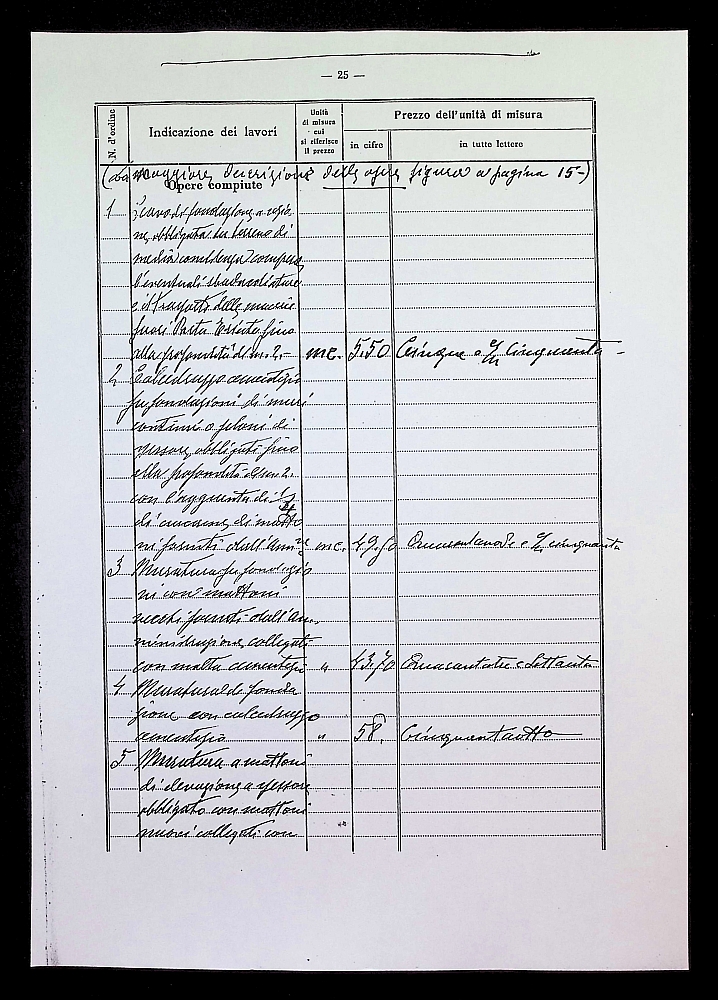 — 25 —
N. d'ordine
Indicazione dei lavori
Unità
di misura
cui
si riferisce
il prezzo
Prezzo dell'unità di misura
in cifre
in tutte lettere
(La maggiore descrizione delle opere figura a pagina 15-)
Opere compiute
1 Scavo di fondazione a sezio
ne obbligata in terreno di
media consistenza compreso
l'eventuali sbadacchiature
e il trasporto delle macerie
fuori Porta fino
alla profondità di m. 2.- mc. 5.50 Cinque e c/m Cinquanta -
2 Calcestruzzo cementizio
per fondazioni di muri
continui o piloni di
spessore obbligati fino
alla profondità di m. 2.
con l'aggiunta di
di di matto
ni forniti dall'Amm.ne mc. 49.50 Quarantanove e c/m cinquanta
3 Muratura per fondazio
ni con mattoni
vecchi forniti dall'Am-
ministrazione collegati
con malta cementizia " 43.70 Quarantatre e Settanta
4 Muratura di fonda
zione con calcestruzzo
cementizio " 58. Cinquantotto
5 Muratura a mattoni
di elevazione a spessore
obbligato con mattoni
nuovi collegati con